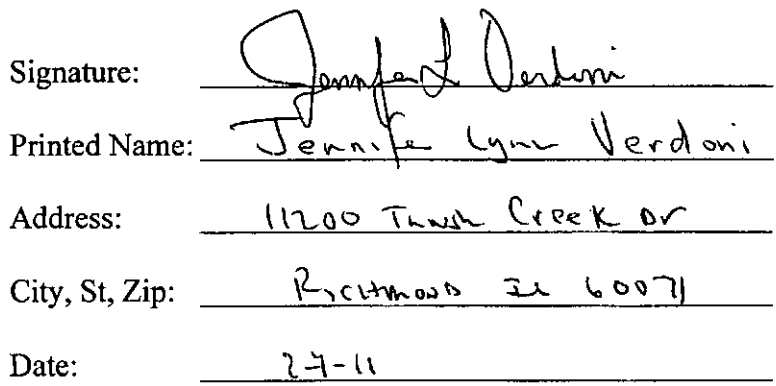 Signature: Jennifer L Verdoni
Printed Name: Jennifer Lynn Verdoni
Address: 11200 Creek Dr
City, St, Zip: Richmond IL 60071
Date: 2-7-11